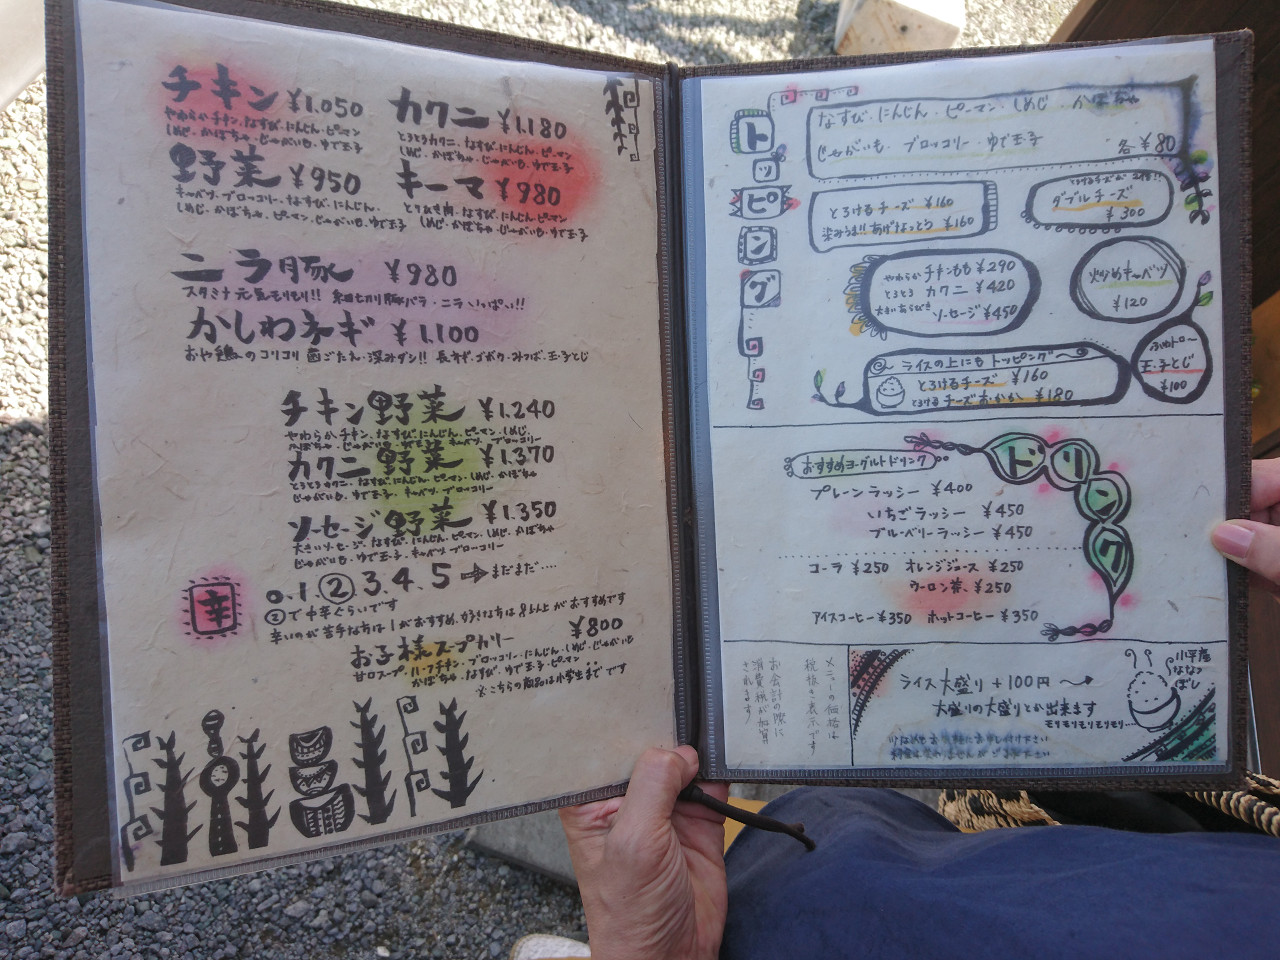 チキン ¥1.050
やわらかチキン・なすび・にんじん・ピーマン
しめじ・かぼちゃ・じゃがいも・ゆで玉子
カクニ ¥1.180
とろとろカクニ・なすび・にんじん・ピーマン
しめじ・かぼちゃ・じゃがいも・ゆで玉子
野菜 ¥950
キャベツ・ブロッコリー・なすび・にんじん
しめじ・かぼちゃ・ピーマン・じゃがいも・ゆで玉子
キーマ ¥980
とりひき肉・なすび・にんじん・ピーマン
しめじ・かぼちゃ・じゃがいも・ゆで玉子
ニラ豚 ¥980
スタミナ元気モリモリ!! 細切り豚バラ・ニラいっぱい!!
かしわネギ ¥1.100
おや鶏のコリコリ歯ごたえ・深みダシ!! 長ネギ・ゴボウ・みつば・玉子とじ
チキン野菜 ¥1.240
やわらかチキン・なすび・にんじん・ピーマン・しめじ・
かぼちゃ・じゃがいも・ゆで玉子・キャベツ・ブロッコリー
カクニ野菜 ¥1.370
とろとろカクニ・なすび・にんじん・ピーマン・しめじ・かぼちゃ
じゃがいも・ゆで玉子・キャベツ・ブロッコリー
ソーセージ野菜 ¥1.350
大きいソーセージ・なすび・にんじん・ピーマン・しめじ・かぼちゃ
じゃがいも・ゆで玉子・キャベツ・ブロッコリー
辛 0.1.②3.4.5→まだまだ‥‥
②で中辛ぐらいです
辛いのが苦手な方は1がおすすめ、好きな方は8以上がおすすめです
お子様スープカリー ¥800
甘口スープ・ハーフチキン・ブロッコリー・にんじん・しめじ・じゃがいも
かぼちゃ・なすび・ゆで玉子・ピーマン
※こちらの商品は小学生までです
トッピング
なすび・にんじん・ピーマン・しめじ・かぼちゃ
じゃがいも・ブロッコリー・ゆで玉子 各¥80
とろけるチーズ ¥160
染みうま!!あげなっとう ¥160
とろけるチーズが2倍!!
ダブルチーズ
¥300
やわらか チキンもも ¥290
とろとろ カクニ ¥420
大きいあらびき ソーセージ ¥450
炒めキャベツ
¥120
ライスの上にもトッピング
とろけるチーズ ¥160
とろける チーズおかか ¥180
ふわトロ〜
玉子とじ
¥100
ドリンク
おすすめヨーグルトドリンク
プレーンラッシー ¥400
いちごラッシー ¥450
ブルーベリーラッシー ¥450
コーラ ¥250 オレンジジュース ¥250
ウーロン茶 ¥250
アイスコーヒー ¥350 ホットコーヒー ¥350
メニューの価格は
税抜き表示です
お会計の際に
消費税が加算
されます
ライス大盛り+100円→
大盛りの大盛りとか出来ます
モリモリモリモリモリ…
ななつ
ぼし